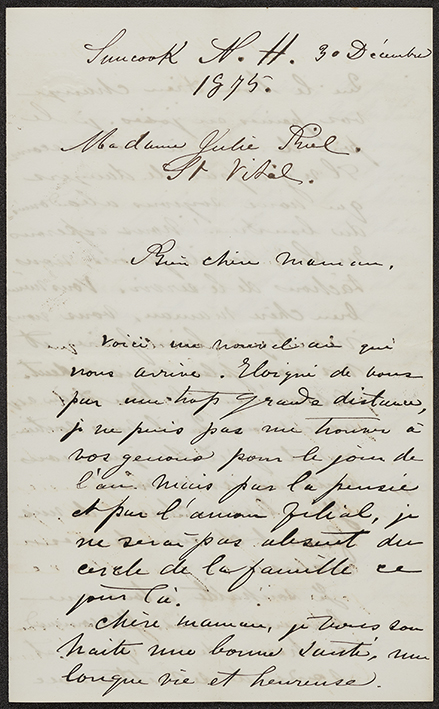 Suncook N. H. 30 Décembre
1875.
Madame Julie Riel.
St Vital.
Bien chère maman,
Voici un nouvel an qui
nous arrive. Eloigné de vous
par une trop grande distance,
je ne puis pas me trouver à
vos genoux pour le jour de
l'an mais par la pensée
et par l'amour filial, je
ne serai pas absent du
cercle de la famille ce
jour là.
Chère maman, je vous sou
haite une bonne santé, une
longue vie et heureuse.